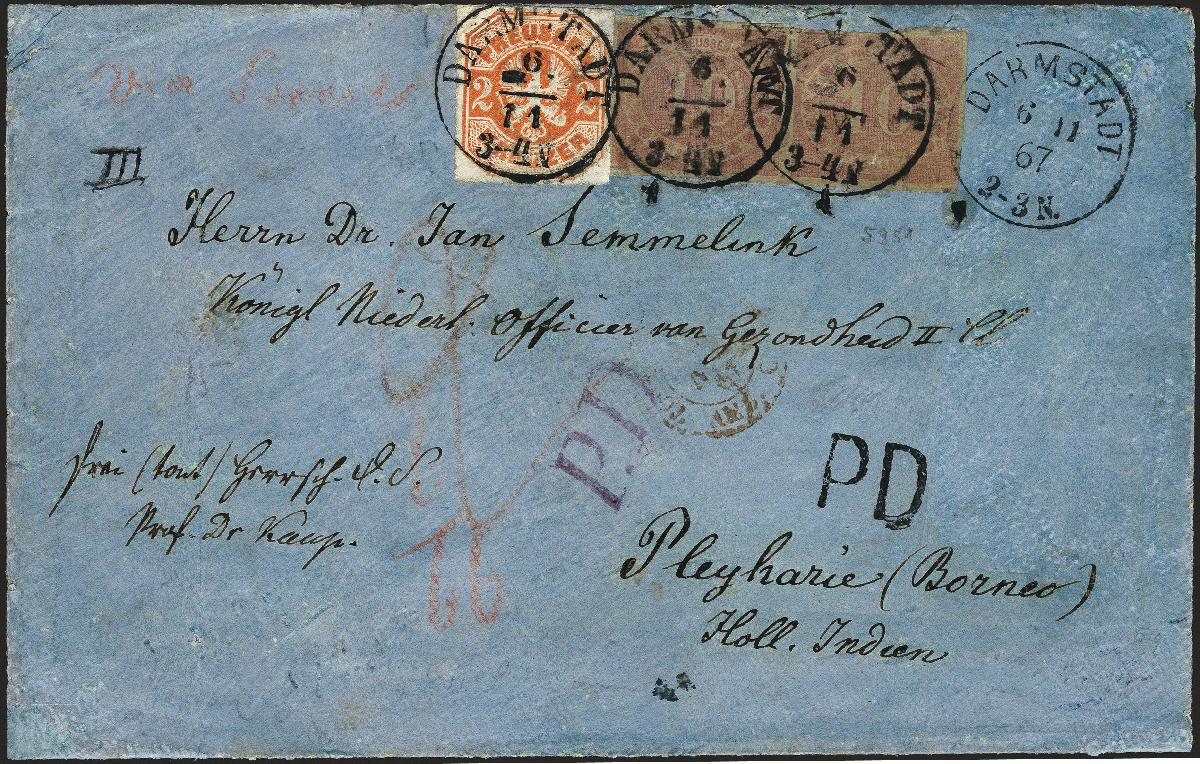 DARMSTADT
6.
11
3-4N
PREUSSEN
2
2
KREUZER
DARMSTADT
6
11
3-4N
DARMSTADT
6
11
3-4N
DARMSTADT
6 11
67
2-3 N.
via
III
Herrn Dr. Jan Semmelink
5351
Königl Niederl. Officier van Gezondheid II Cl
P.D.
PD
frei (tout) Herrsch. D. S.
Prof. Dr Kaup.
Pleyharie (Borneo)
Holl. Indien